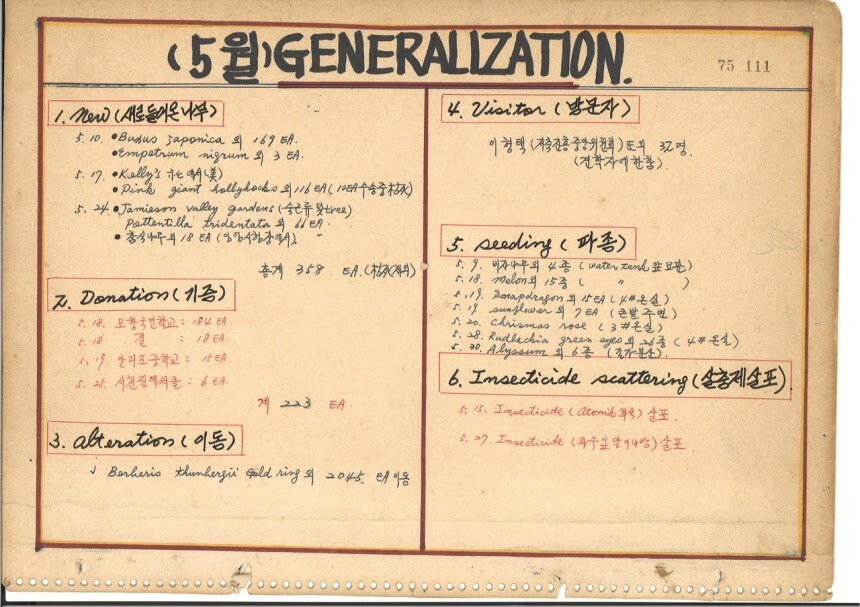 (5월) GENERALIZATION.
75 111
1. New (새로들어온나무)
5. 10. • Buxus japonica 외 169 EA.
• Empetrum nigrum 외 3 EA.
5. 17. • Kelly's
• Pink giant hollyhocks 외 116 EA (10EA 수송중枯死)
5. 24. • Jamieson valley gardens
Pottentilla tridentata 외 66 EA.
외 18 EA
총계 358 EA. (枯死제외)
2. Donation (기증)
5. 18. 모항국민학교 : 184 EA
5. 18 : 18 EA
5. 19. 만리포중학교 : 15 EA
5. 25. : 6 EA.
계 223 EA
3. alteration (이동)
Berberis thunbergii Gold ring 외 2045. EA 이동
4. Visitor (방문자)
이형택 (저축진흥중앙위원회) 氏외 32명.
(견학자에한함).
5. seeding (파종)
5. 9. 비자나무외 4종 (water tank 앞묘판)
5. 18. Melon외 15종 ( " )
5. 19. Snapdragon 외 15 EA (4#온실)
5. 19 sunflower 외 7 EA (큰밭주변)
5. 20. Chrismas rose (3#온실)
5. 28. Rudbechia green eyes 외 26종 (4#온실)
5. 30. Alyssum 외 6종
6. Insecticide scattering (살충제살포).
5. 15. Insecticide 살포.
5. 27. Insecticide 살포